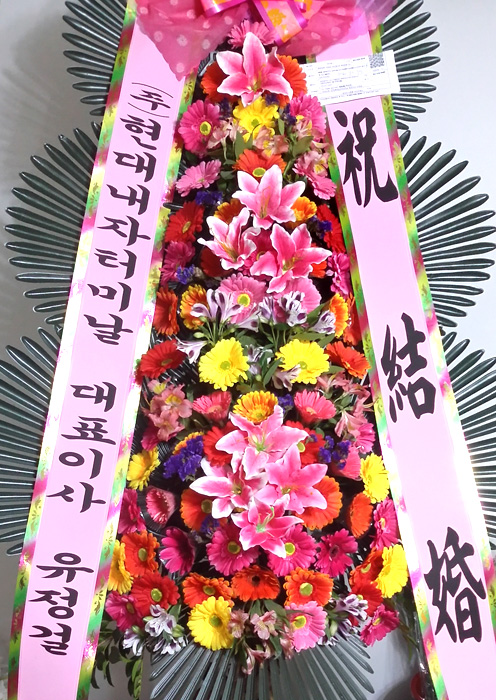 (주)현대내자터미날 대표이사 유정걸
祝結婚